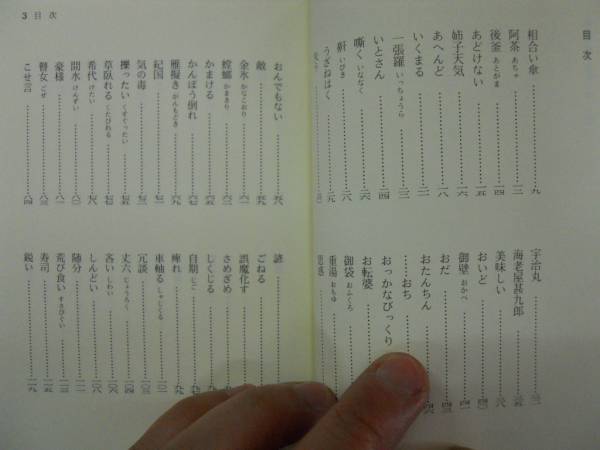 目次
相合い傘……九
阿茶 あちゃ……一一
後釜 あとがま……一四
あどけない……一五
姉子天気……一六
あへんど……一七
いくまる……一八
一張羅 いっちょうら……二一
いとさん……二四
嘶く いななく……二六
鼾 いびき……二八
うざねはく……二九
宇治丸……三二
海老屋甚九郎……三五
美味しい……三八
おいど……四〇
御壁 おかべ……四二
おだ
おたんちん
おち
おっかなびっくり
お転婆
御袋 おふくろ
重湯 おもゆ
3 目次
おんでもない……五八
敵……五九
金氷 かなこおり……六一
螳螂 かまきり……六三
かまける……六五
かんぼう倒れ……六七
雁擬き がんもどき……六九
紀国……七一
気の毒……七三
擽ったい くすぐったい……七五
草臥れる くたびれる……七六
希代 けたい……七八
間水 けんずい……八〇
豪様……八一
瞽女 ごぜ……八三
こせ言……八四
諺
ごねる
誤魔化す
さめざめ
しくじる
自期 しご
痺れ……九九
車軸る しゃじくる……一〇一
冗談……一〇二
丈六 じょうろく……一〇四
吝い しわい……一〇六
しんどい……一〇八
随分……一一一
荒び食い すさびぐい……一一三
寿司……一一五
鋭い……一一九